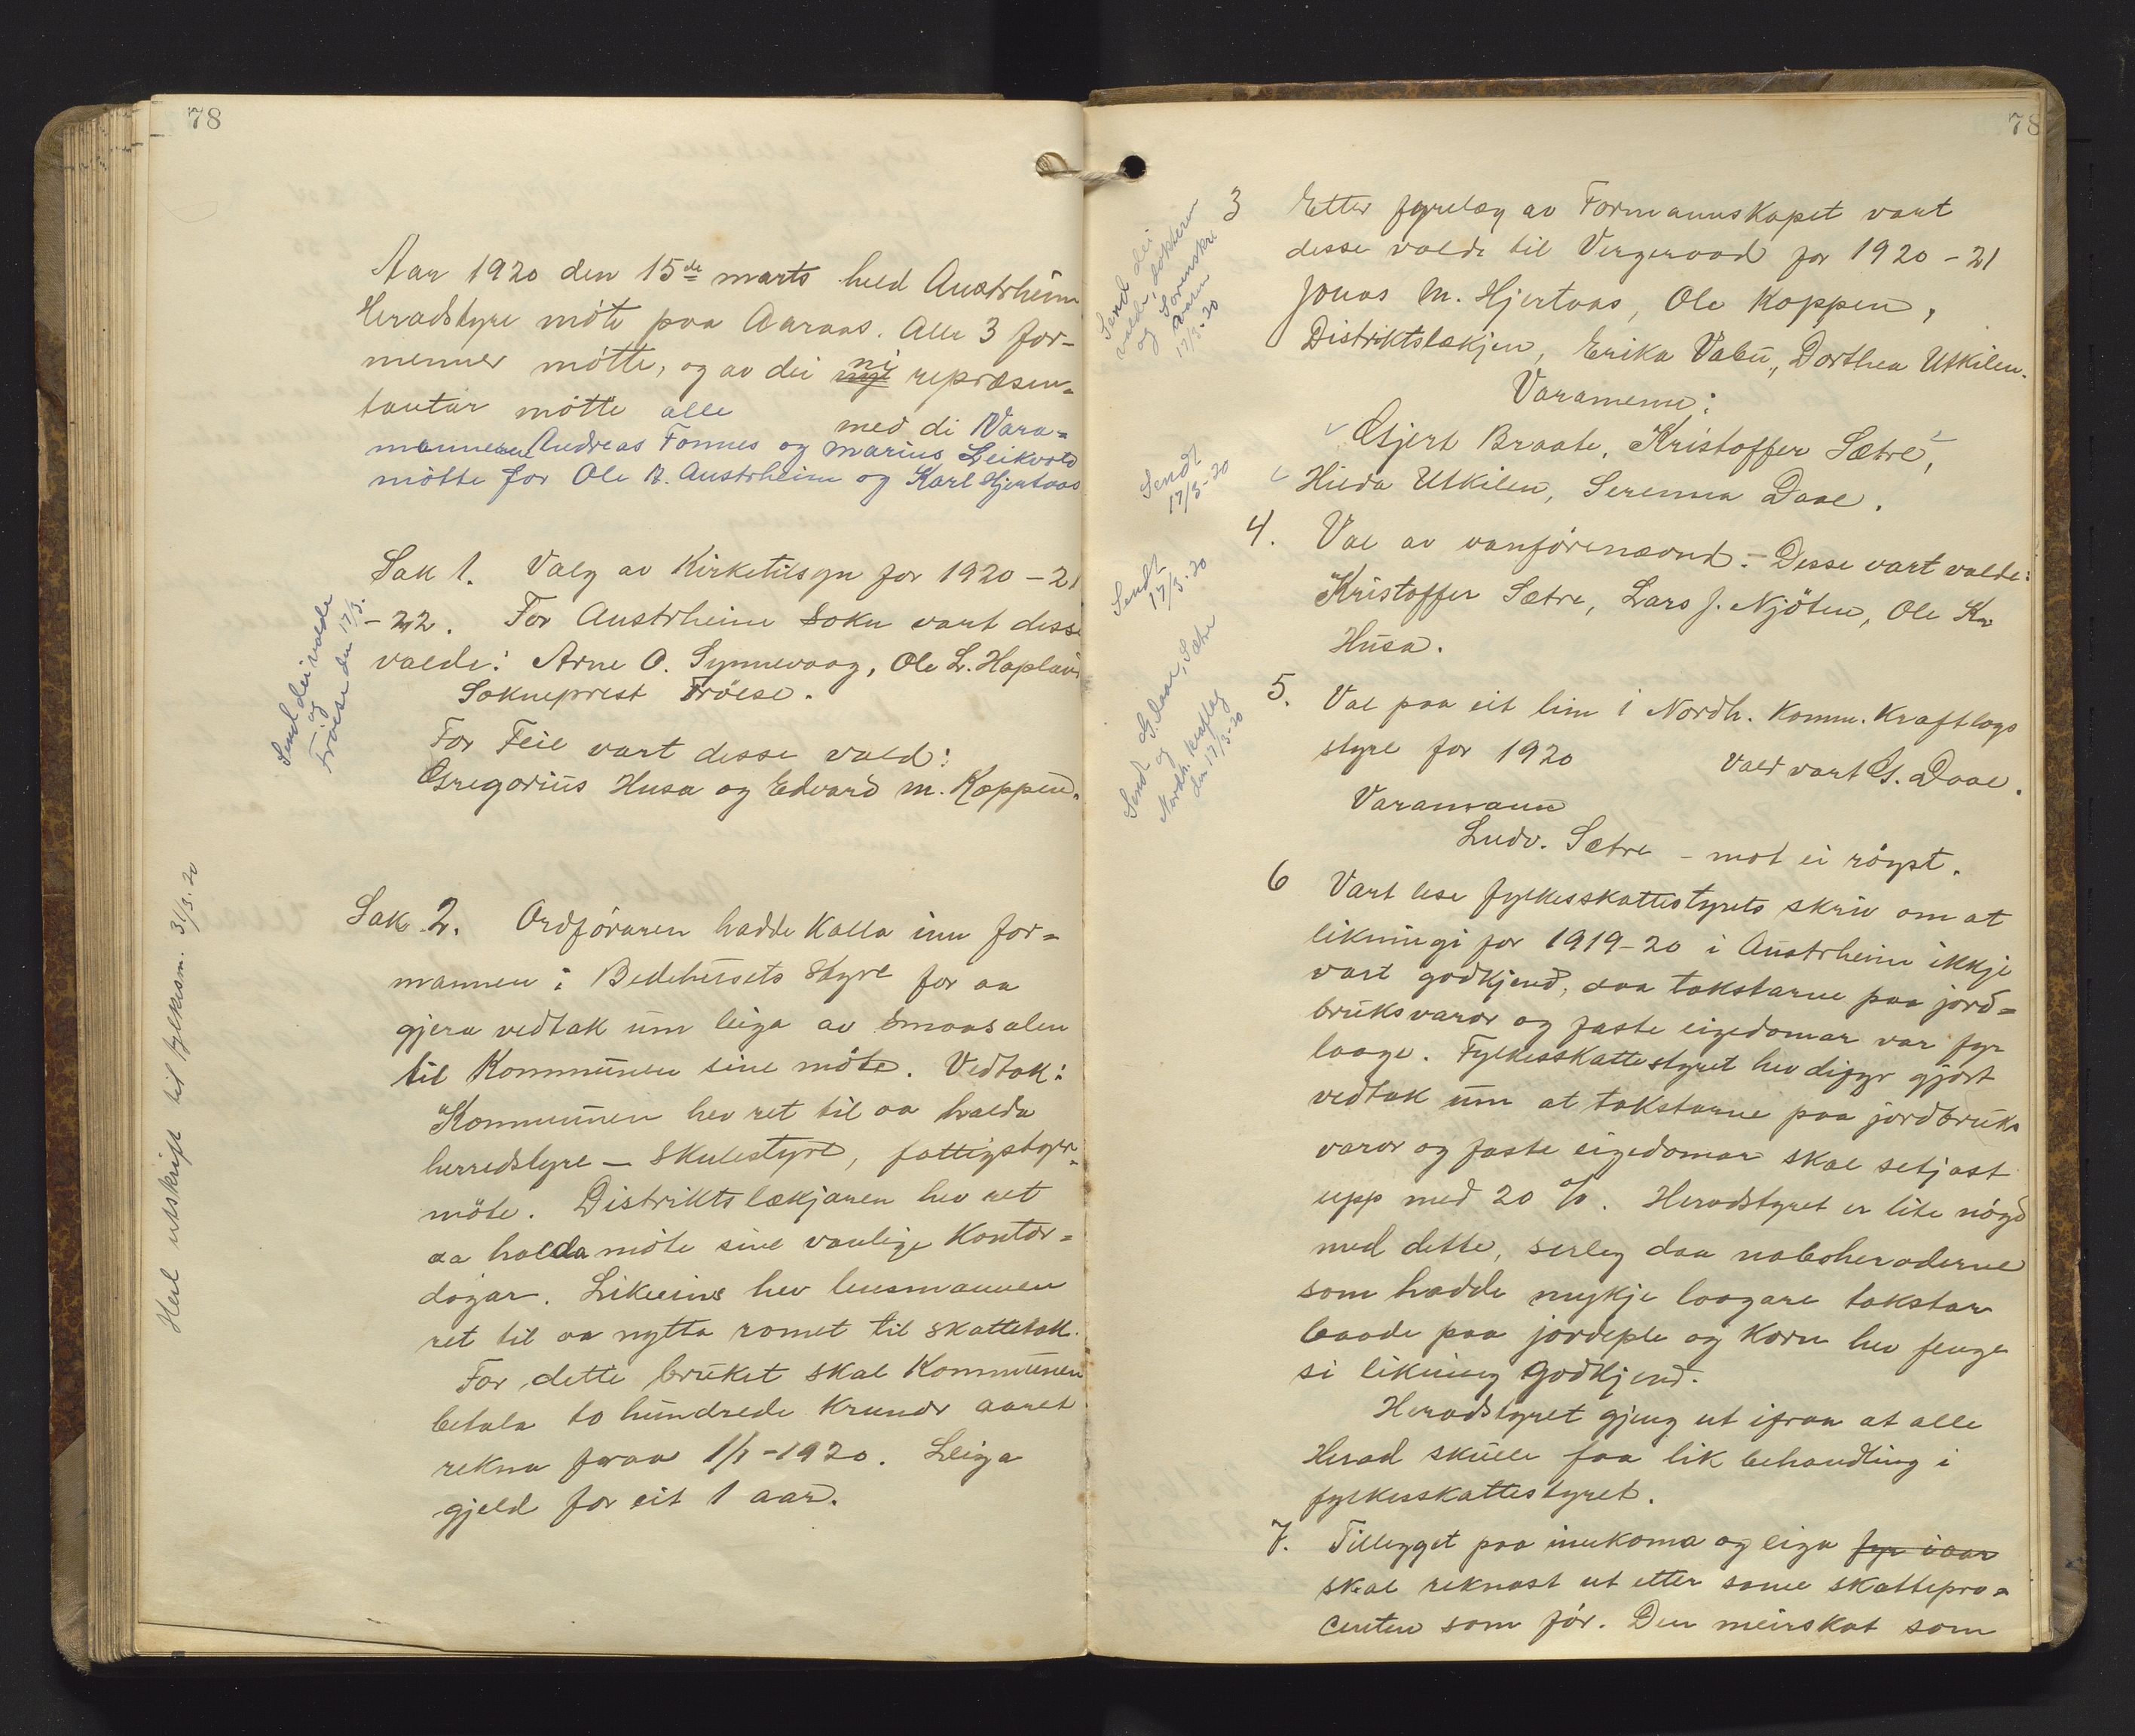 78
Aar 1920 den 15de marts held Austrheim
Heradstyre möte paa Aaraas. Alle 3 for-
menner mötte, og av dei nye ni repræsen-
tantar mötte alle med di Vara-
mannene Andreas Fonnes og Marius Leikvold
mötte for Ole B. Austrheim og Karl Hjertaas
Sak 1. Valg av Kirketilsyn for 1920-21
-22. For Austrheim Sokn vart disse
valde: Arne O. Synnevaag, Ole L. Hoplaud
Sokneprest Fröese.
For Feie vart desse vald:
Gregorius Husa og Edvard M. Koppen.
Send dei valde
og
Fröese den 17/3.
Sak 2. Ordföraren hadde kalla inn for-
mannen i Bedehusets Styre for aa
gjera vedtak um leiga av smaasalen
til Kommunen sine möte. Vedtak:
Kommunen hev ret til aa halda
herredstyre - Skulestyre, fattigstyre-
möte. Distriktslækjaren hev ret
aa halda möte sine vanlige Kontor-
dagar. Likeeins hev lensmannen
ret til aa nytta romet til skattetak.
For dette bruket skal Kommunen
betala to hundrede krunor aaret
rekna fraa 1/1-1920. Leiga
gjeld for eit 1 aar.
Heil utskrift til fylkesm. 31/3-20
78
3 Etter fyrelag av Formannskapet vart
desse valde til Vergeraad for 1920-21
Jonas M. Hjertaas, Ole Koppen,
Distriktslækjen, Erika Vabu, Dorthea Utkilen.
Varamenn:
Gjert Braate, Kristoffer Sætre,
Hilda Utkilen, Serenna Daae.
Send dei
valde, dokteren
og Sorenskri
varen
17/3-20
4. Val av vanförenævnd. - Desse vart valde:
Kristoffer Sætre, Lars J. Njöten, Ole Kr
Husa.
Sendt
17/3-20
5. Val paa eit lim i Nordh. Komm. Kraftlags
styre for 1920 Vald vart G. Daae.
Varamann
Ludv. Sætre - mot ei röyst.
Sendt
17/3-20
Sendt G. Daae, Sætre
og
Nordh. kraftlag
den 17/3-20
6 Vart lese fylkesskattestyrets skriv om at
likningi for 1919-20 i Austrheim ikkje
vart godkjend, daa takstarne paa jord-
bruksvaror og faste eigedomar var fyr
laage. Fylkesskattestyret hev difyr gjort
vedtak um at takstarne paa jordbruks
varor og faste eigedomar skal setjast
upp med 20 %. Heradstyret er lite nögd
med dette, serleg daa naboheraderne
som hadde mykje laagare takstar
baade paa jordeple og korn hev fenge
si likning godkjend.
Heradstyret gjeng ut ifraa at alle
Herad skulle faa lik behandling i
fylkesskattestyret.
7. Tillegget paa innkoma og eiga fyr iaar
skal reknast ut etter same skattepro-
centen som för. Den meirskat som